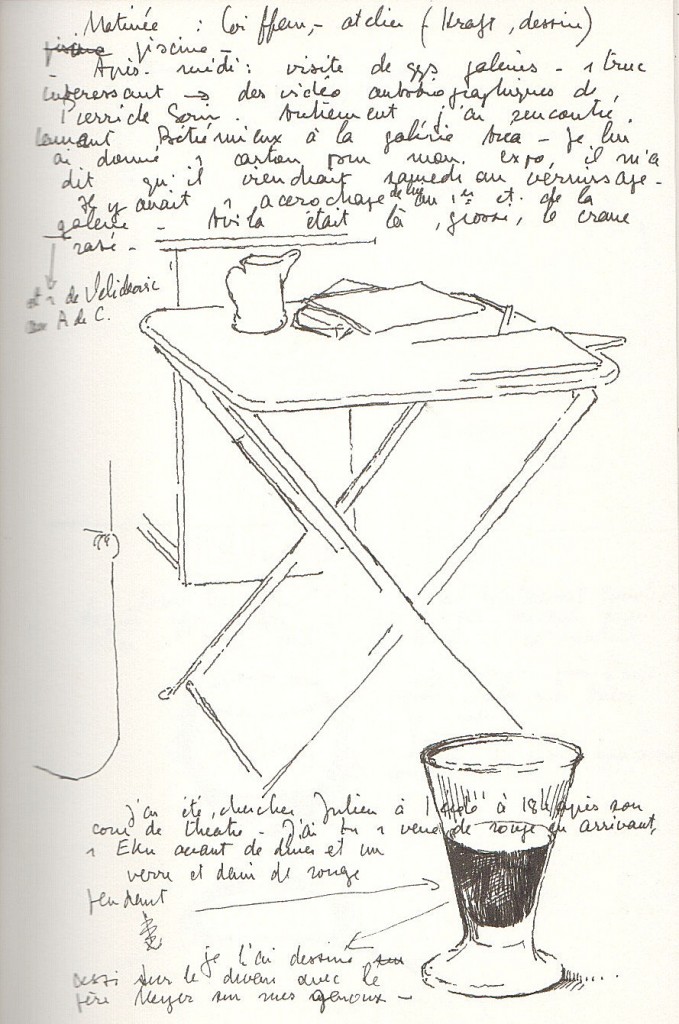 Matinée : Coiffeur, - atelier (Kraft, dessin)
piscine piscine -
Après-midi : visite de qqs galeries - 1 truc
intéressant → des vidéo autobiographiques de
Pierrick Sorin. Autrement j'ai rencontré
Laurent à la galerie - Je lui
ai donné 1 carton pour mon expo, il m'a
dit qu'il viendrait samedi au vernissage -
Il y avait 1 accrochage de lui au 1er et. de la
galerie - était là, grosse, le crane
rasé -
et 1 de Velickovic
aux A de C.
j'ai été chercher Julien à à 18h après son
cour de theatre - J'ai bu 1 verre de rouge en arrivant,
1 Eku avant de diner et un
verre et demi de rouge
pendant
je l'ai dessiné
assi sur le divan avec le
père Meyer sur mes genoux -